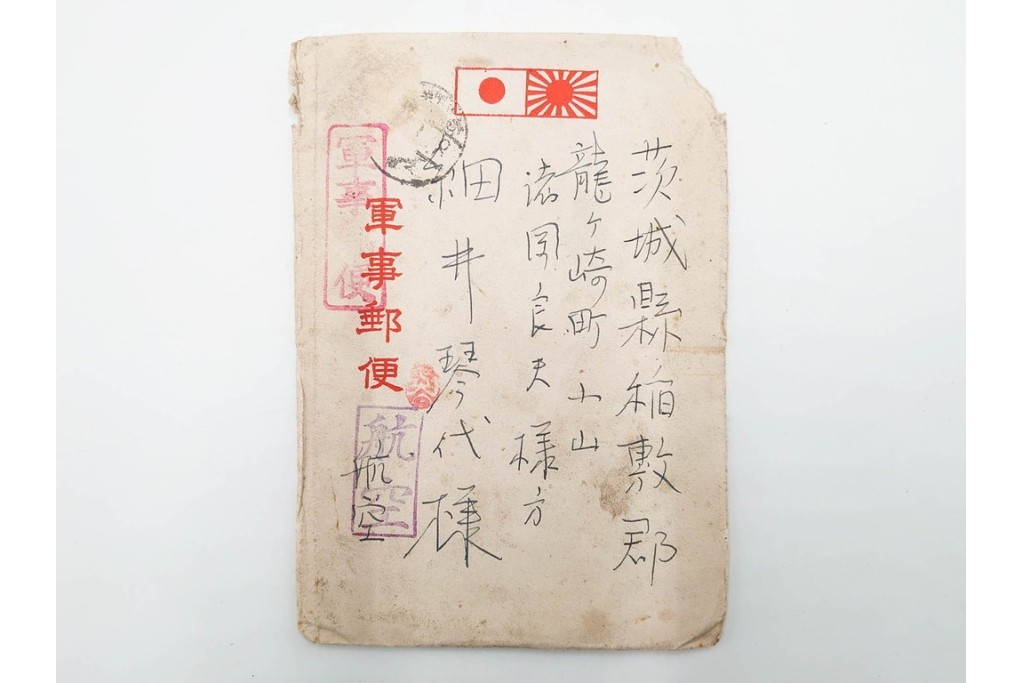 茨城縣稲敷郡
龍ヶ崎町小山
遠岡良夫様方
細井琴代様
軍事郵便
軍事 便
航空
航空